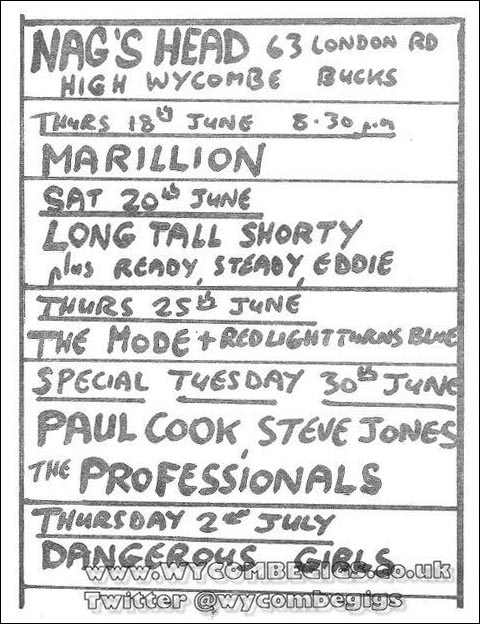 NAG'S HEAD 63 LONDON RD
HIGH WYCOMBE BUCKS
THURS 18th JUNE 8.30 p.m
MARILLION
SAT 20th JUNE
LONG TALL SHORTY
plus READY, STEADY, EDDIE
THURS 25th JUNE
THE MODE + RED LIGHT TURNS BLUE
SPECIAL TUESDAY 30th JUNE
PAUL COOK, STEVE JONES
THE PROFESSIONALS
THURSDAY 2nd JULY
DANGEROUS GIRLS
www.WYCOMBEGIGS.co.uk
Twitter @wycombegigs